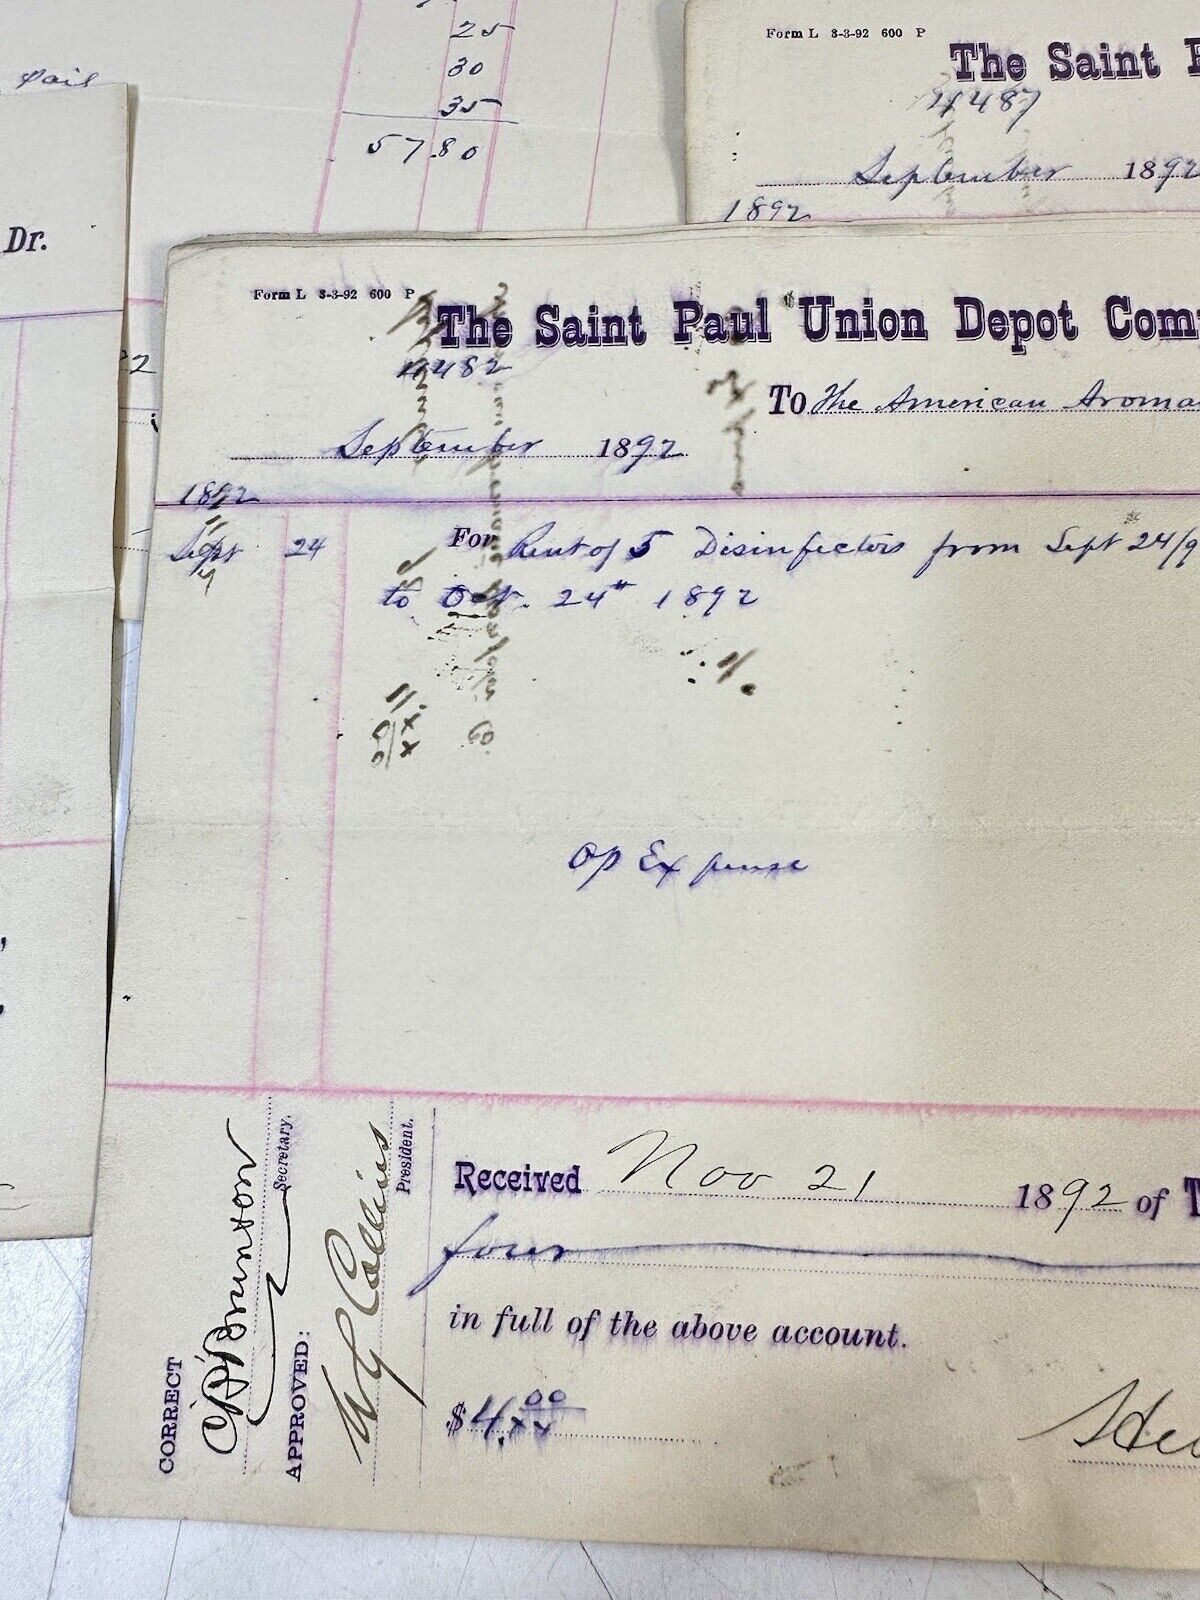 25
30
paid
35
57.80
Dr.
Form L 3-3-92 600 P
The Saint P
4487
September 1892
1892
Form L 3-3-92 600 P
The Saint Paul Union Depot Com
4482
To The American Aroma
September 1892
1892
Sept 24 For Rent of 5 Disinfectors from Sept 24/9
to Oct. 24th 1892
Op Expense
CORRECT
Secretary.
APPROVED:
W G Collins
President.
Received Nov 21 1892 of T
four
in full of the above account.
$4.00